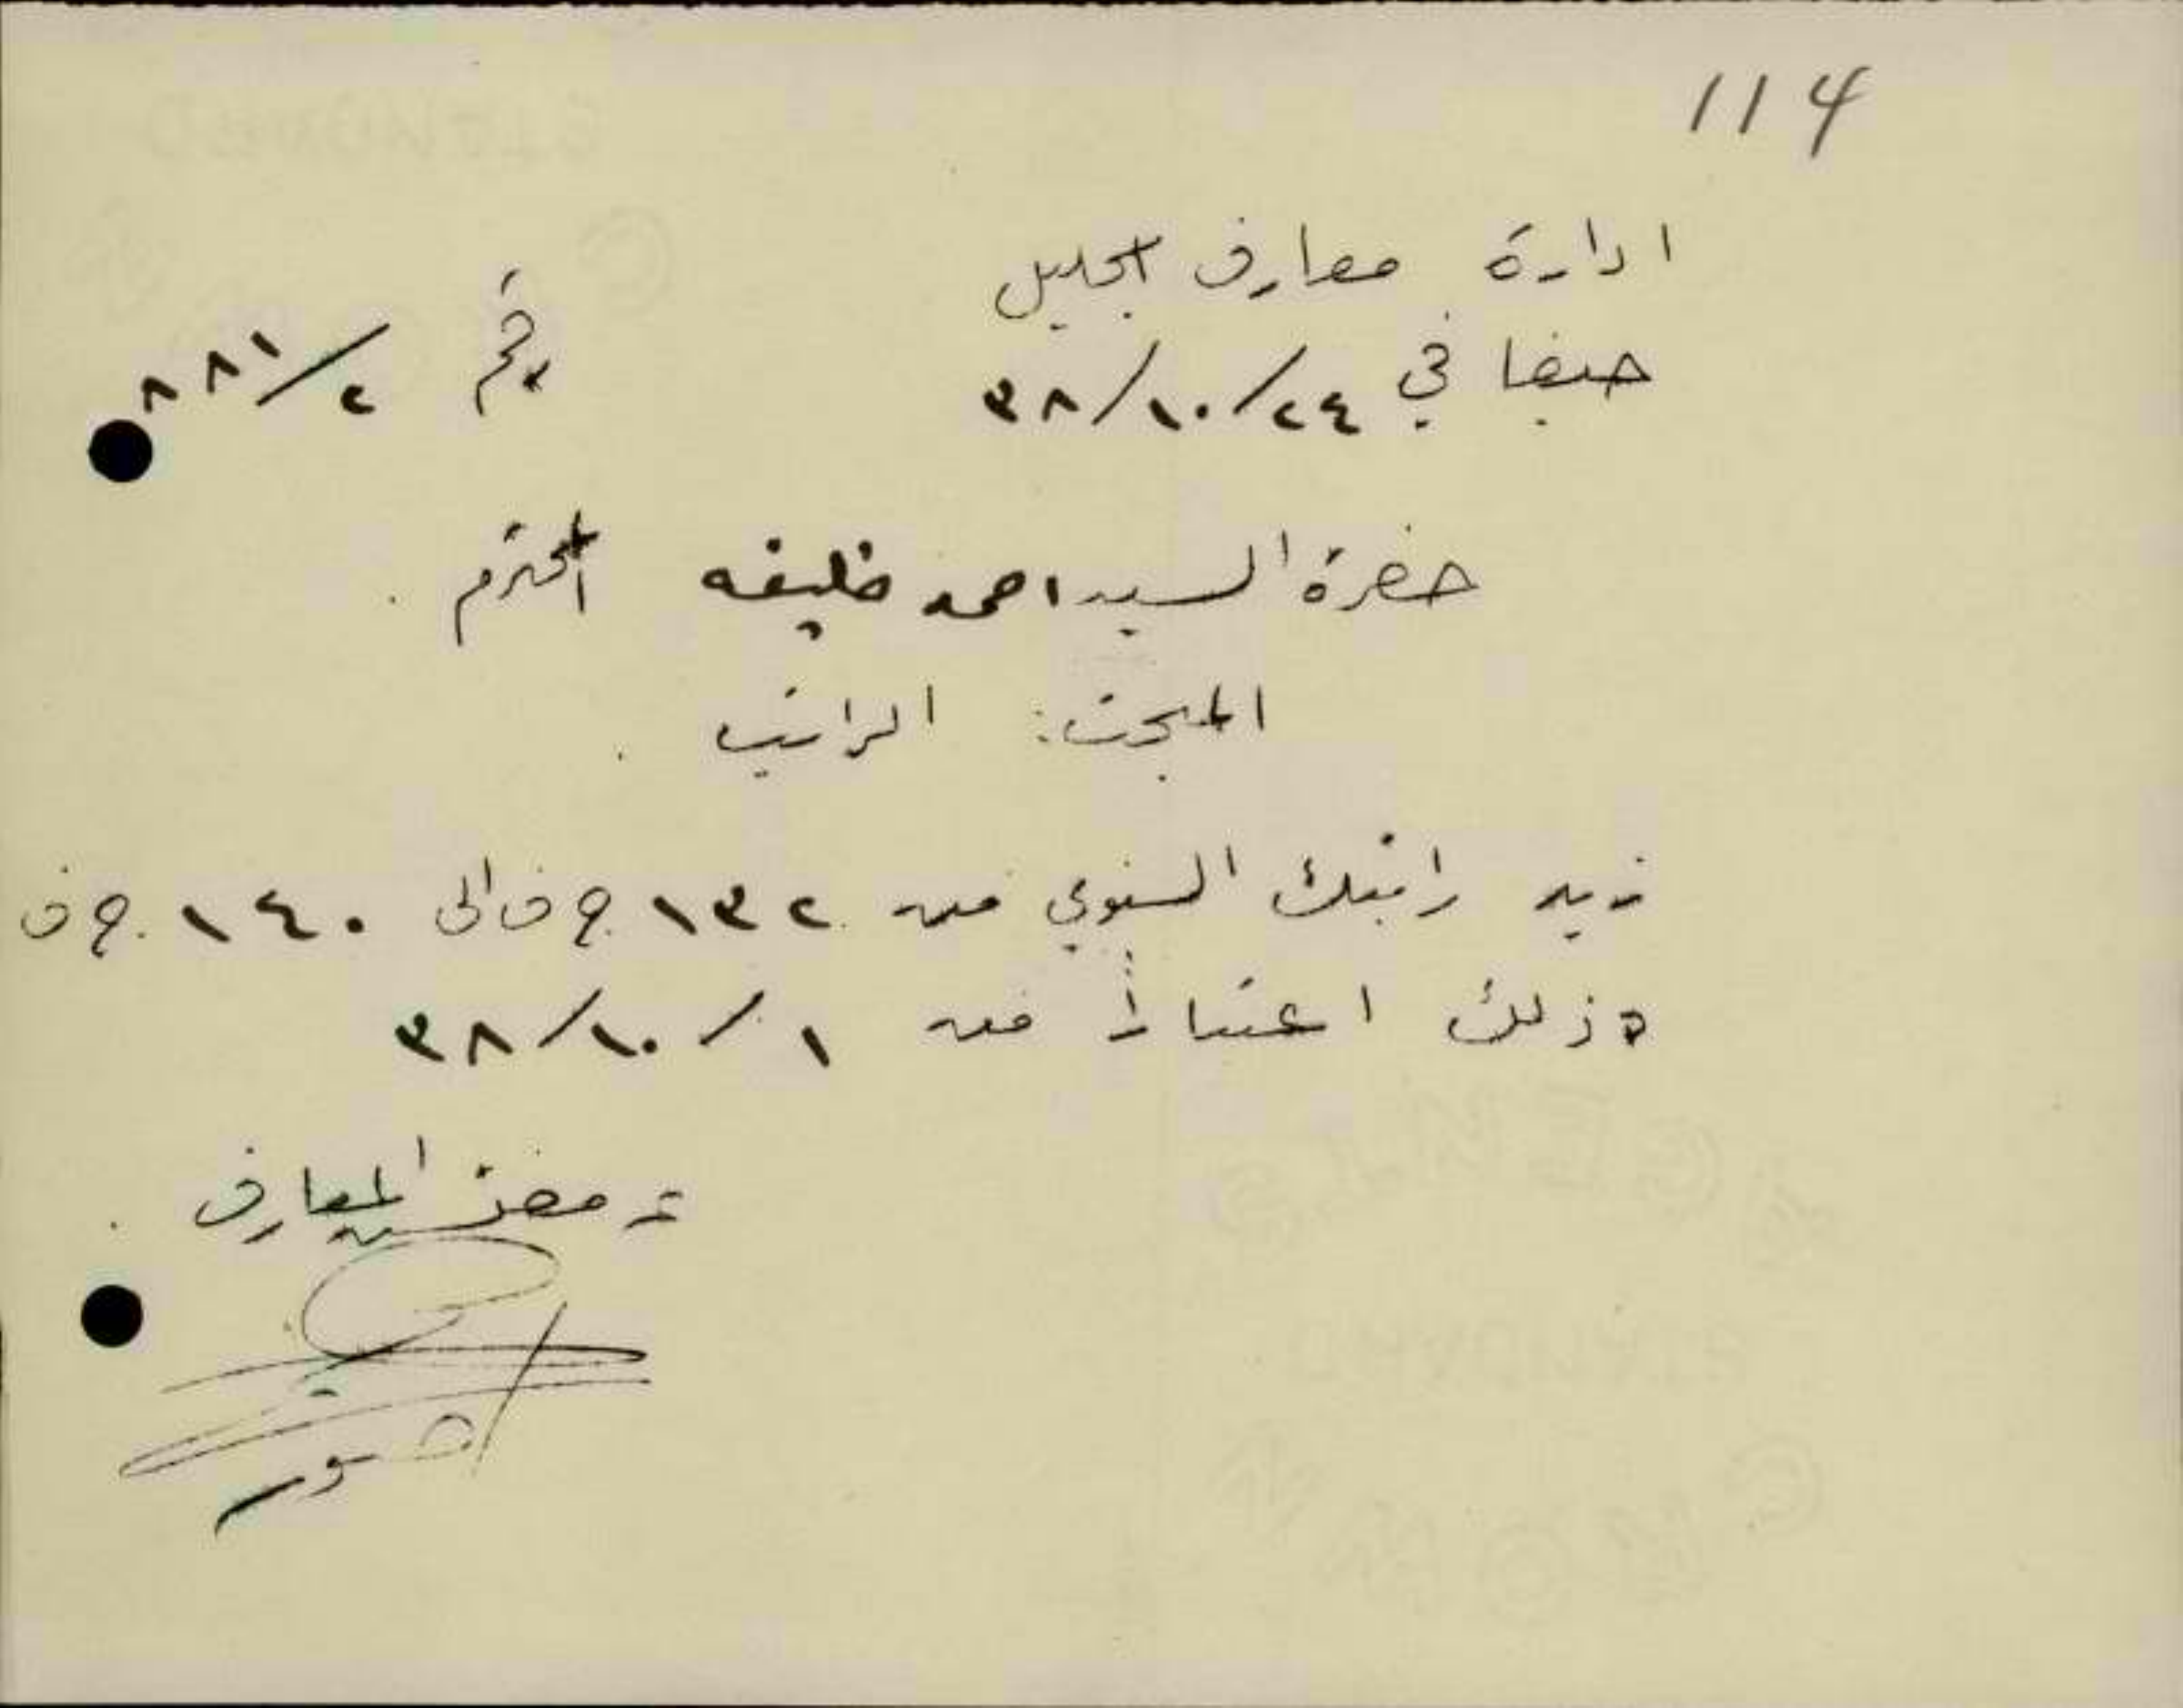 114
ادارة معارف الجليل
حيفا في ٢٤/١٠/٣٨
رقم ٢/٨٨١
حضرة السيد احمد خليفه المحترم .
المبحث : الراتب .
زيد راتبك السنوي من ١٣٢ ج ف الى ١٤٠ ج ف
وذلك اعتباراً من ١/١٠/٣٨
عن مفتش المعارف .